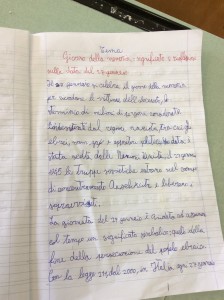 Tema
Giorno della memoria, significato e riflessione
sulla data del 27 gennaio.
Il 27 gennaio si celebra il giorno della memoria
per ricordare le vittime dell'olocausto, lo
sterminio di milioni di persone considerate
dal regime nazista tra cui gli
ebrei, rom, gay e oppositori
stata scelta della perché il 27 gennaio
1945 le truppe sovietiche entrarono nel campo
di concentramento Auschwitz e liberarono i
sopravvissuti.
La giornata del 27 gennaio è diventata ad assumere
col tempo un significato simbolico: quello della
fine della persecuzione del popolo ebraico.
Con la legge 211 del 2000, in Italia, ogni 27 gennaio